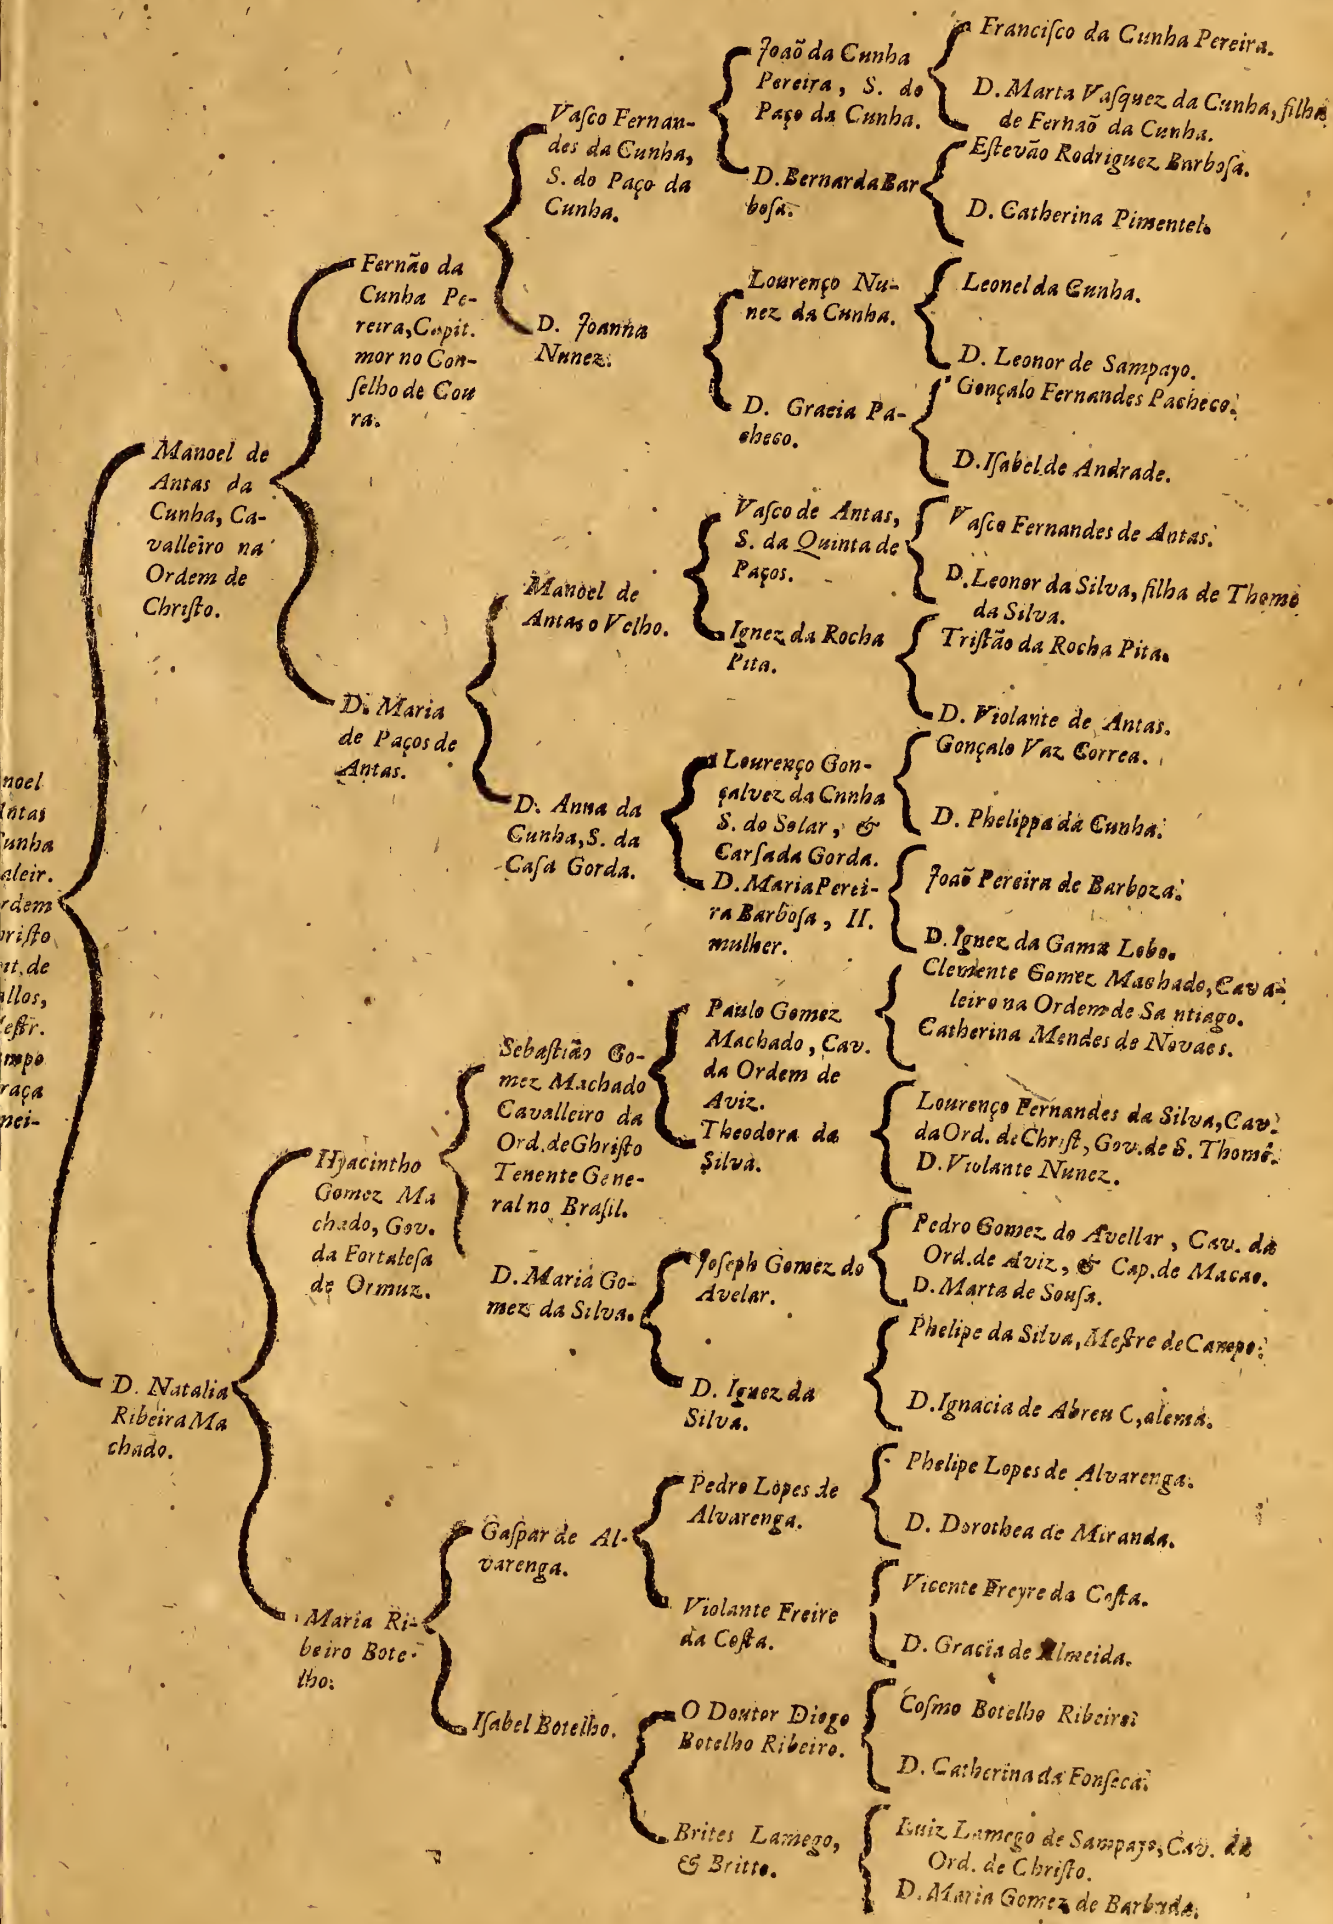 noel
Antas
Cunha
aleir.
rdem
hristo
it. de
allos,
estr.
ampo
raça
nei-
Manoel de
Antas da
Cunha, Ca-
valleiro na
Ordem de
Chriſto.
D. Natalia
Ribeira Ma
chado.
Fernão da
Cunha Pe-
reira, Capit.
mor no Con-
ſelho de Cou
ra.
D. Maria
de Paços de
Antas.
Hyacintho
Gomez Ma
chado, Gov.
da Fortaleſa
de Ormuz.
Maria Ri-
beiro Bote-
lho.
Vaſco Fernan-
des da Cunha,
S. do Paço da
Cunha.
D. Joanna
Nunez.
Manoel de
Antas o Velho.
D. Anna da
Cunha, S. da
Caſa Gorda.
Sebaſtião Go-
mez Machado
Cavalleiro da
Ord. de Ghriſto
Tenente Gene-
ral no Braſil.
D. Maria Go-
mez da Silva.
Gaſpar de Al-
varenga.
Iſabel Botelho.
Joaõ da Cunha
Pereira, S. do
Paço da Cunha.
D. Bernarda Bar
boſa.
Lourenço Nu-
nez da Cunha.
D. Gracia Pa-
checo.
Vaſco de Antas,
S. da Quinta de
Paços.
Ignez da Rocha
Pita.
Lourenço Gon-
çalvez da Cnnha
S. do Solar, &
Carſada Gorda.
D. Maria Perei-
ra Barboſa, II.
mulher.
Paulo Gomez
Machado, Cav.
da Ordem de
Aviz.
Theodora da
Silva.
Joſeph Gomez do
Avelar.
D. Ignez da
Silva.
Pedro Lopes de
Alvarenga.
Violante Freire
da Coſta.
O Doutor Diogo
Botelho Ribeiro.
Brites Lamego,
& Britto.
Franciſco da Cunha Pereira.
D. Marta Vaſquez da Cunha, filha
de Fernaõ da Cunha.
Eſtevão Rodriguez Barboſa.
D. Catherina Pimentel.
Leonel da Cunha.
D. Leonor de Sampayo.
Gonçalo Fernandes Pacheco.
D. Iſabel de Andrade.
Vaſco Fernandes de Antas.
D. Leonor da Silva, filha de Thome
da Silva.
Triſtão da Rocha Pita.
D. Violante de Antas.
Gonçalo Vaz Correa.
D. Phelippa da Cunha.
Joaõ Pereira de Barboza.
D. Ignez da Gama Lobo.
Clemente Gomez Machado, Cava-
leiro na Ordem de Santiago.
Catherina Mendes de Novaes.
Lourenço Fernandes da Silva, Cav.
da Ord. de Chriſt, Gov. de S. Thomé.
D. Violante Nunez.
Pedro Gomez do Avellar, Cav. da
Ord. de Aviz, & Cap. de Macao.
D. Marta de Souſa.
Phelipe da Silva, Meſtre de Campo.
D. Ignacia de Abreu C,alema.
Phelipe Lopes de Alvarenga.
D. Dorothea de Miranda.
Vicente Freyre da Coſta.
D. Gracia de Almeida.
Coſmo Botelho Ribeiro.
D. Catherina da Fonſeca.
Luiz Lamego de Sampayo, Cav. da
Ord. de Chriſto.
D. Maria Gomez de Barbuda.